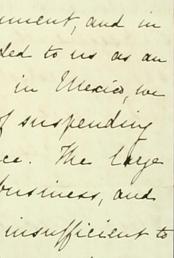 ument, and in
ded to us as an
in Mexico, we
of suspending
ce. The large
business, and
insufficient to